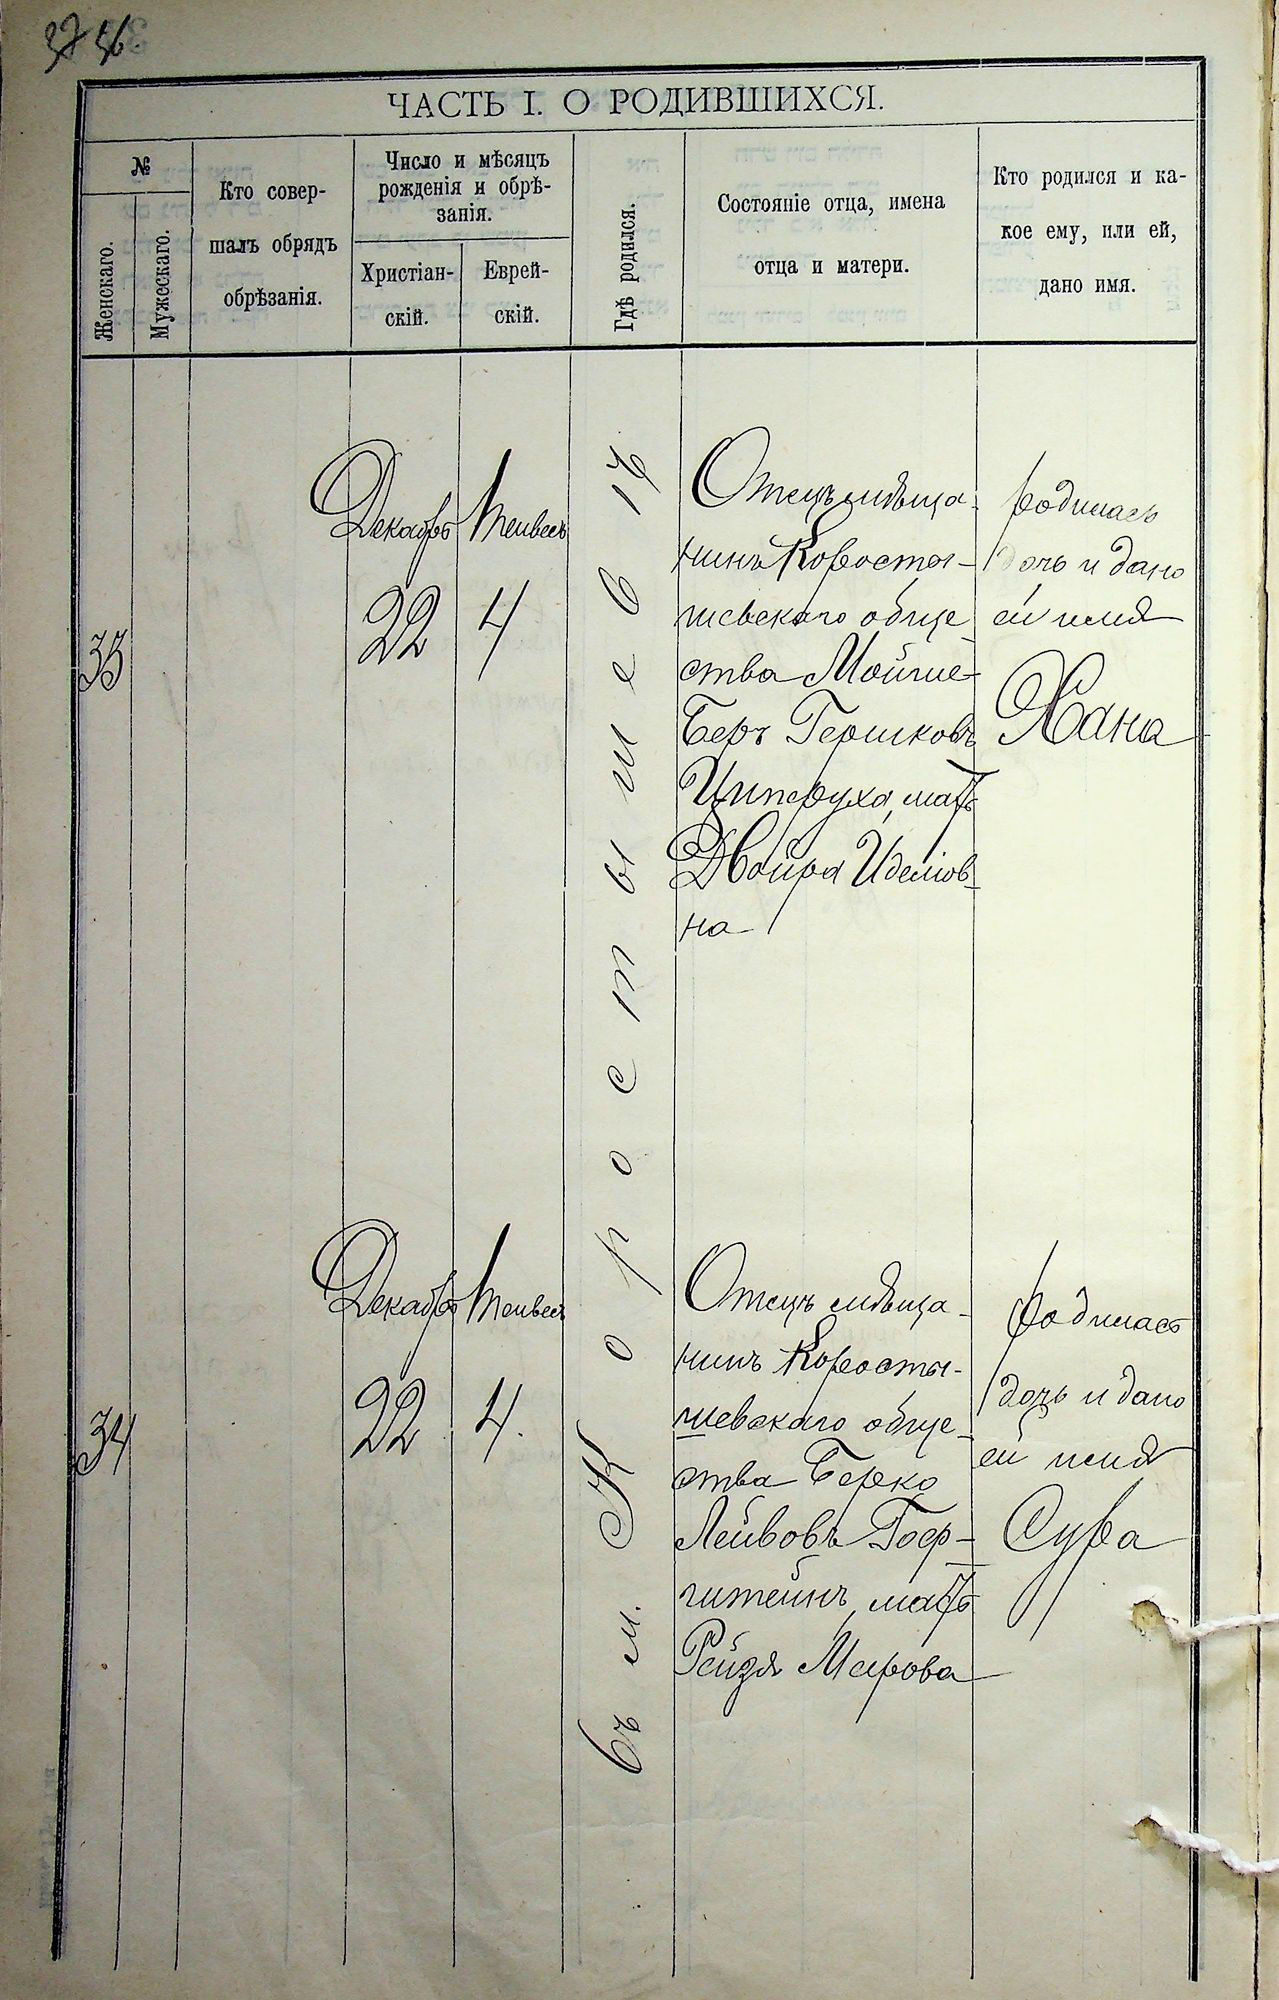 37 36
ЧАСТЬ I. О РОДИВШИХСЯ.
№
Женскаго.
Мужескаго.
Кто совер-
шалъ обрядъ
обрѣзанія.
Число и мѣсяцъ
рожденія и обрѣ-
занія.
Христіан-
скій.
Еврей-
скій.
Гдѣ родился.
Состояніе отца, имена
отца и матери.
Кто родился и ка-
кое ему, или ей,
дано имя.
33
Декабрь
22
Тейвесъ
4
Въ м. Коростышевѣ
Отецъ мѣща-
нинъ Коросты-
шевскаго обще-
ства Мойше-
Беръ Гершковъ
Ципоруха, мать
Двойра Иделіов-
на
родилась
дочь и дано
ей имя
Хана
34
Декабрь
22
Тейвесъ
4.
Отецъ мѣща-
нинъ Коросты-
шевскаго обще-
ства Берко
Лейвовъ Гоер-
штейнъ, мать
Рейзя Меерова
родилась
дочь и дано
ей имя
Сура